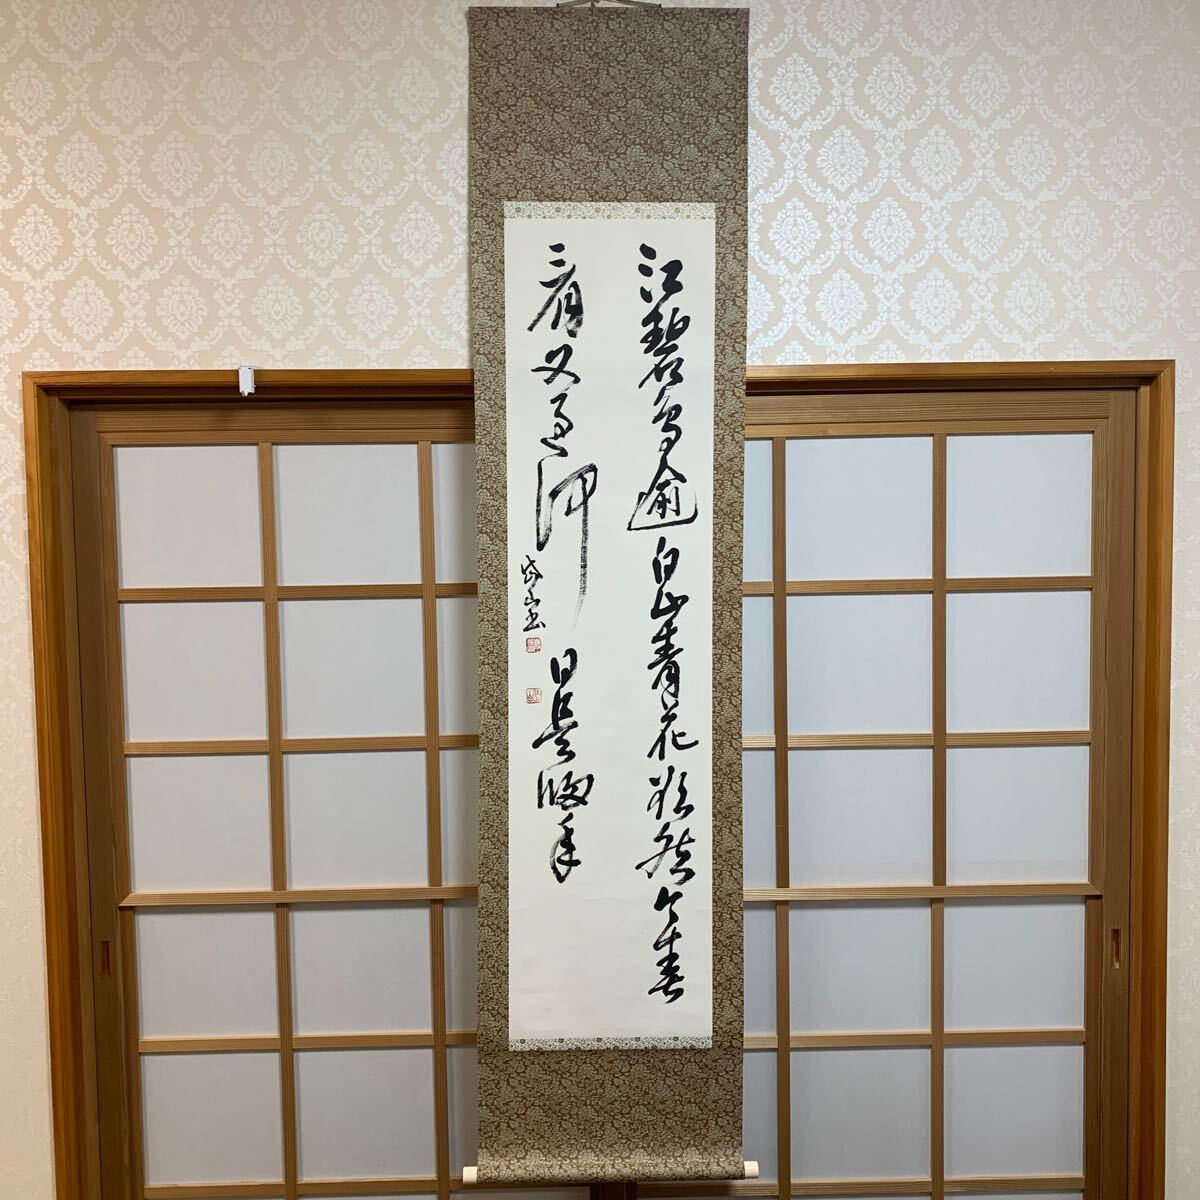 江碧鳥逾白山青花欲然今春
看又過何日是歸年
岱山書